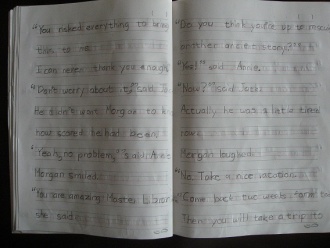 "You risked everything to bring
this to me.
I can never thank you enough."
"Don't worry about it," said Jack.
He didn't want Morgan to know
how scared he had been!
"Yeah, no problem," said Annie.
Morgan smiled.
"You are amazing Master Librarians,"
she said.
"Do you think you're up to rescuing
another ancient story?"
"Yes!" said Annie.
"Now?" said Jack.
Actually he was a little tired
now.
Morgan laughed.
"No. Take a nice vacation.
"Come back two weeks from today.
Then you will take a trip to